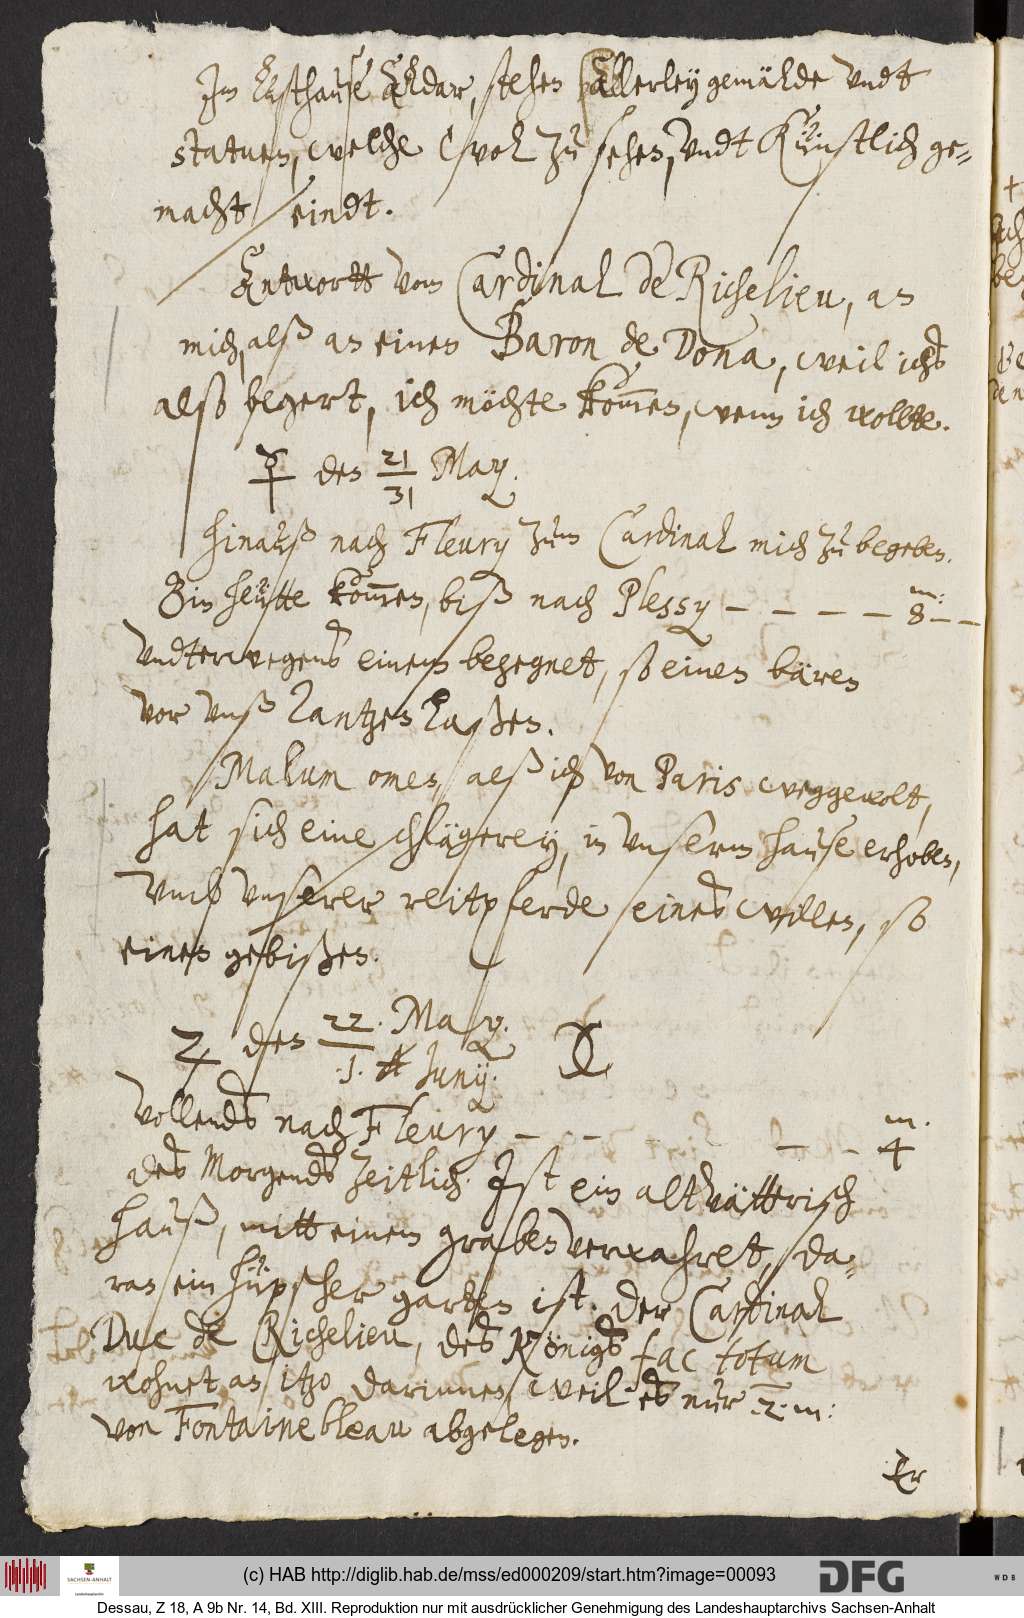 Im Gasthause Aldar, stehen allerley gemählde undt
statuen, welche wol zu sehen, undt Künstlich ge=
macht seindt.
Antwortt vom Cardinal de Richelieu, an
mich, alß an einen Baron de Dona, weil ichs
also begert, ich möchte kom̄en, wenn ich wollte.
☿ den 21/31 May.
Hinauß nach Fleury zum Cardinal mich zu begeben.
Bin heütte kom̄en, biß nach Plessy – – – – 8 m: – –
Undterwegens einem begegnet, so einen bären
vor unß tantzen laßen.
Malum omen, alß ich von Paris weggewolt,
hat sich eine schlägerey, in unserm hause erhoben,
umb unserer reitpferde eines willen, so
einen gebißen.
♃ den 22. May. / .1. Junij.
Vollends nach Fleury – – – – 4 m.
des Morgends zeitlich. Ist ein altvätterisch
hauß, mitt einem graben verwahret, da=
ran ein hüpscher garten ist. Der Cardinal
Duc de Richelieu, des Königs fac totum
wohnet an itzo darinnen, weil es nur .2. m:
von Fontainebleau abgelegen.
Er
(c) HAB http://diglib.hab.de/mss/ed000209/start.htm?image=00093
SACHSEN-ANHALT
Landeshauptarchiv
DFG
WDB
Dessau, Z 18, A 9b Nr. 14, Bd. XIII. Reproduktion nur mit ausdrücklicher Genehmigung des Landeshauptarchivs Sachsen-Anhalt